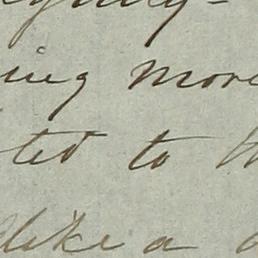 ing more
ted to th
like a